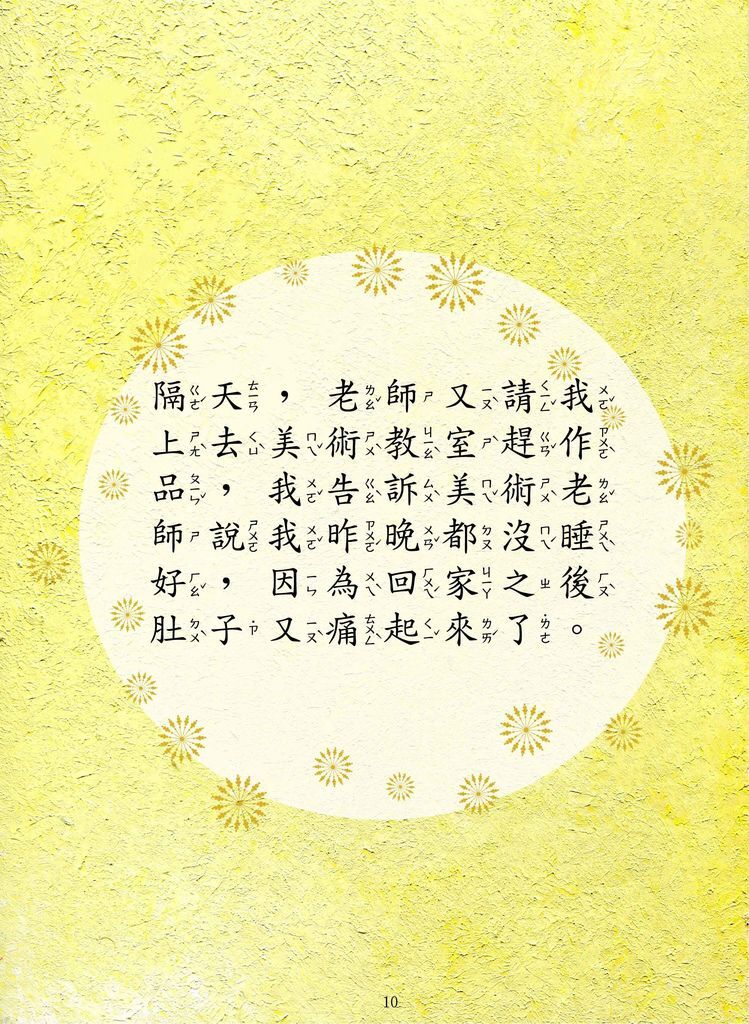 隔天，老師又請我
上去美術教室趕作
品，我告訴美術老
師說我昨晚都沒睡
好，因為回家之後
肚子又痛起來了。
10